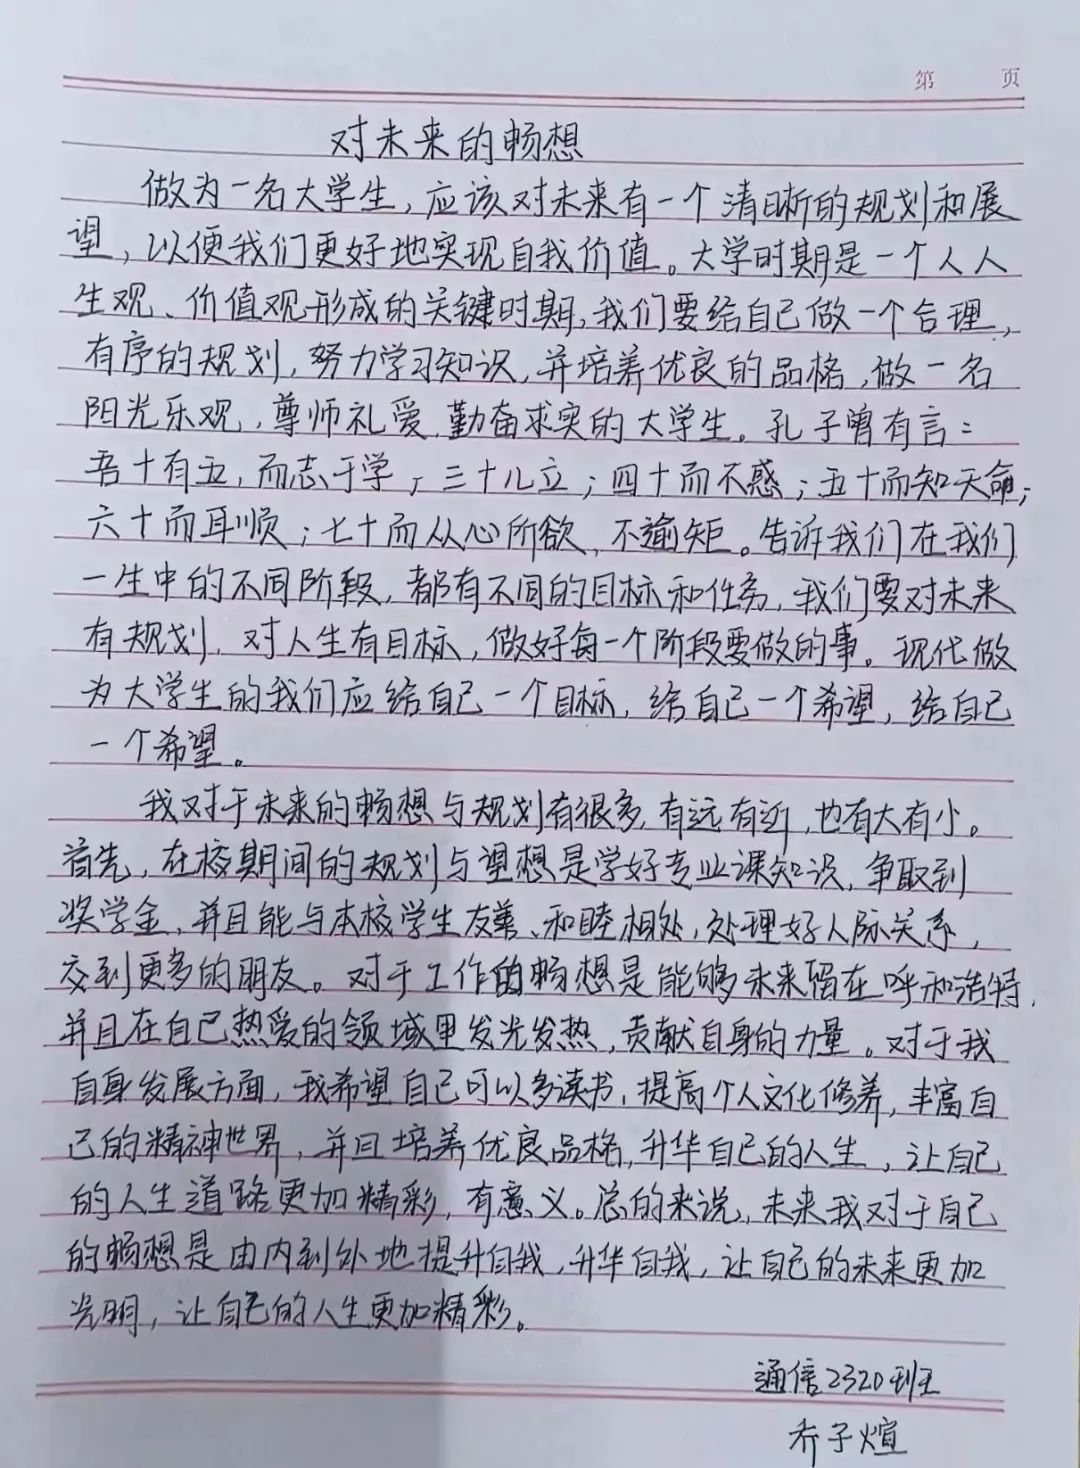 第 页
对未来的畅想
做为一名大学生，应该对未来有一个清晰的规划和展
望，以便我们更好地实现自我价值。大学时期是一个人人
生观、价值观形成的关键时期，我们要给自己做一个合理，
有序的规划，努力学习知识，并培养优良的品格，做一名
阳光乐观，尊师礼爱，勤奋求实的大学生。孔子曾有言：
吾十有五，而志于学，三十儿立；四十而不惑；五十而知天命；
六十而耳顺；七十而从心所欲，不逾矩。告诉我们在我们
一生中的不同阶段，都有不同的目标和任务，我们要对未来
有规划，对人生有目标，做好每一个阶段要做的事。现代做
为大学生的我们应给自己一个目标，给自己一个希望，给自己
一个希望。
我对于未来的畅想与规划有很多，有远有近，也有大有小。
首先，在校期间的规划与望想是学好专业课知识，争取到
奖学金，并且能与本校学生友善、和睦相处，处理好人际关系，
交到更多的朋友。对于工作的畅想是能够未来留在呼和浩特，
并且在自己热爱的领域里发光发热，贡献自身的力量。对于我
自身发展方面，我希望自己可以多读书，提高个人文化修养，丰富自
己的精神世界，并且培养优良品格，升华自己的人生，让自己
的人生道路更加精彩，有意义。总的来说，未来我对于自己
的畅想是由内到外地提升自我，升华自我，让自己的未来更加
光明，让自己的人生更加精彩。
通信2320班
乔子煊